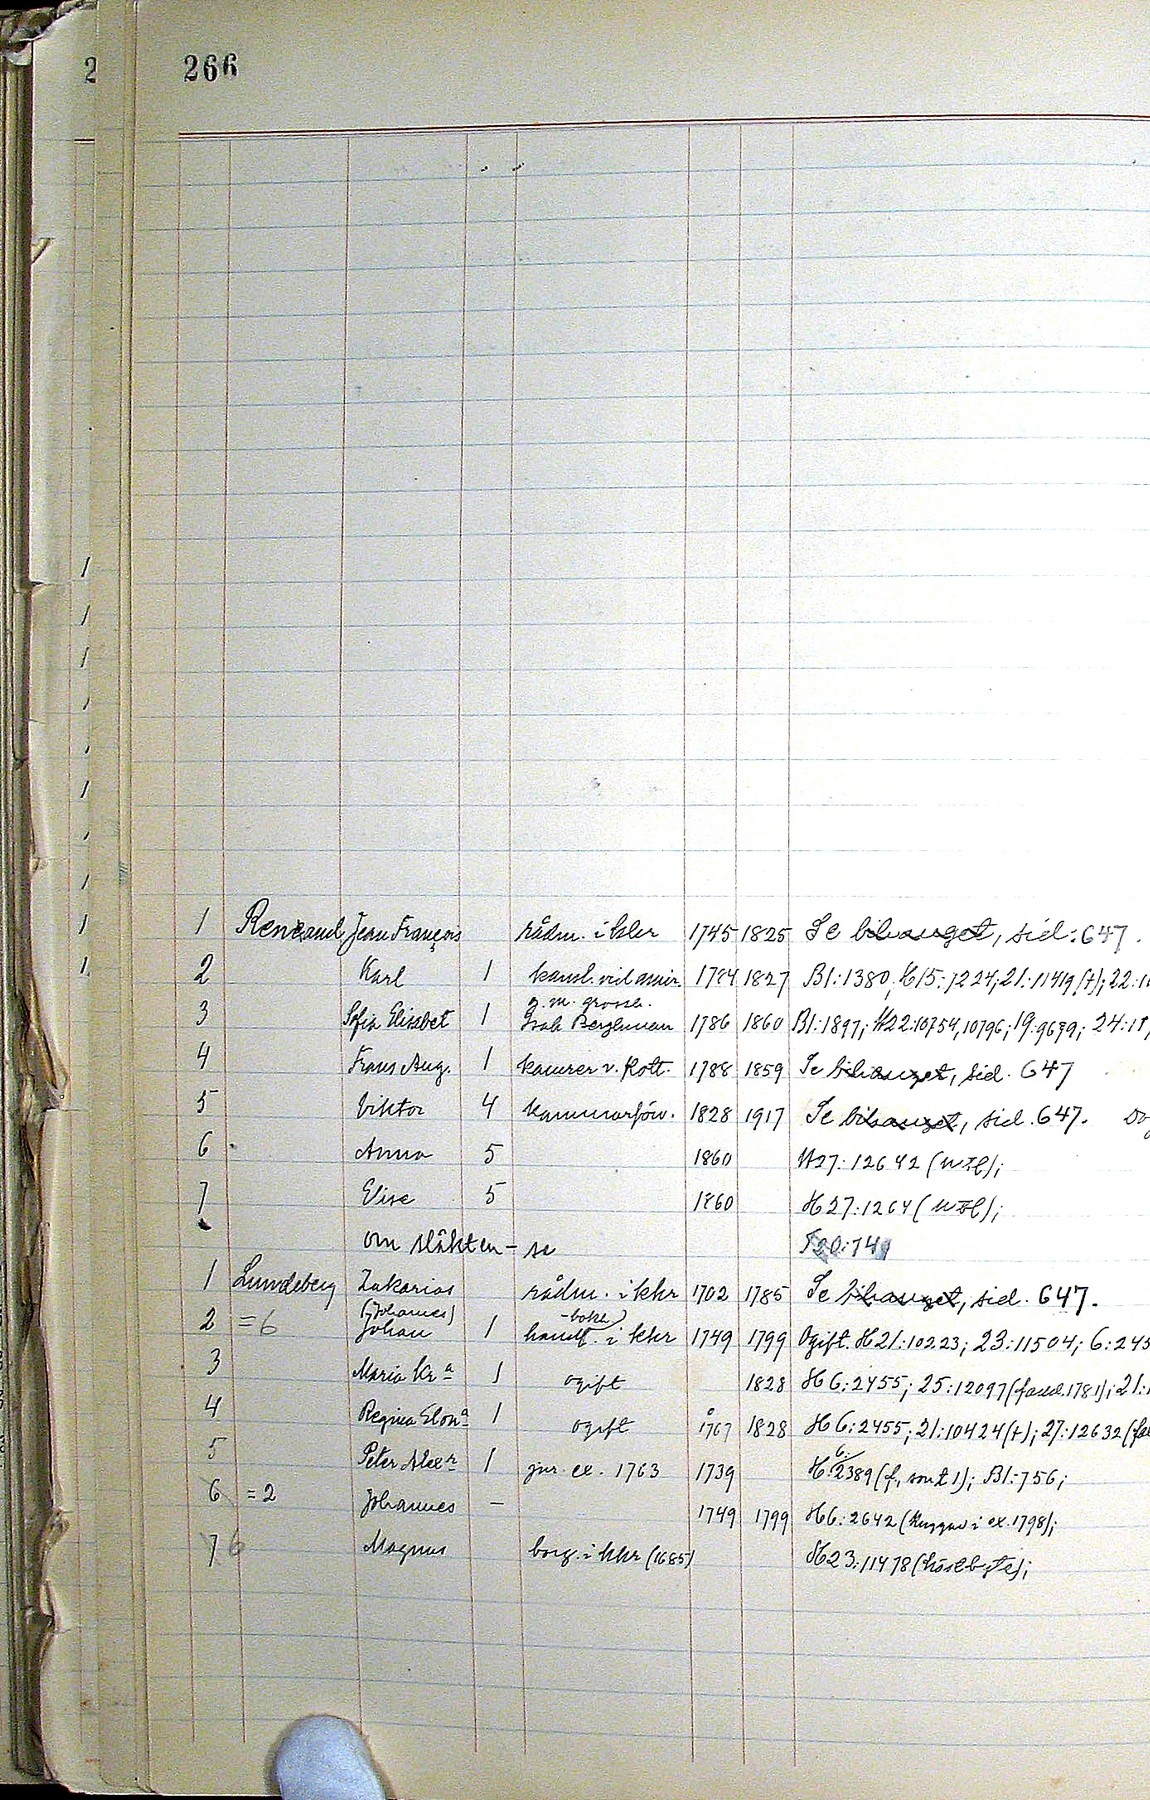 2 266
1 Renaud Jean François rådm. i kkr 1745 1825 Se bihanget, sid. 647.
2 Karl 1 kansl. vid 1784 1827 Bl:1380, H15:7224; 21:11419(†); 22:1
g. m. grossh.
3 Sofia Elisabet 1 Isak Berghman 1786 1860 Bl:1897; H22:10754, 10796; 19:9679; 24:11
4 Frans Aug. 1 kamrer v. kott. 1788 1859 Se bihanget, sid. 647
5 Viktor 4 kammarförv. 1828 1917 Se bihanget, sid. 647.
6 Anna 5 1860 H27:12642
7 Elise 5 1860 H27:1264
om släkten - se 74
1 Lundeberg Zakarias rådm. i kkr 1702 1785 Se bihanget, sid. 647.
(Johannes) -bokh)
2 =6 Johan 1 handl. i kkr 1749 1799 Ogift. H21:10223; 23:11504; 6:245
3 Maria Kr:a 1 ogift 1828 H6:2455; 25:12097(född 1781); 21:
4 Regina Eleon:a 1 ogift 1767 1828 H6:2455; 21:10424(†); 27:12632
6:
5 Peter Alex:r 1 jur. ex. 1763 1739 H:2389(f, son t 1); Bl:756;
6 =2 Johannes — 1749 1799 H6:2642 (Kuggas i ex. 1798);
7 6 Magnus borg. i kkr (1685) H23:11478